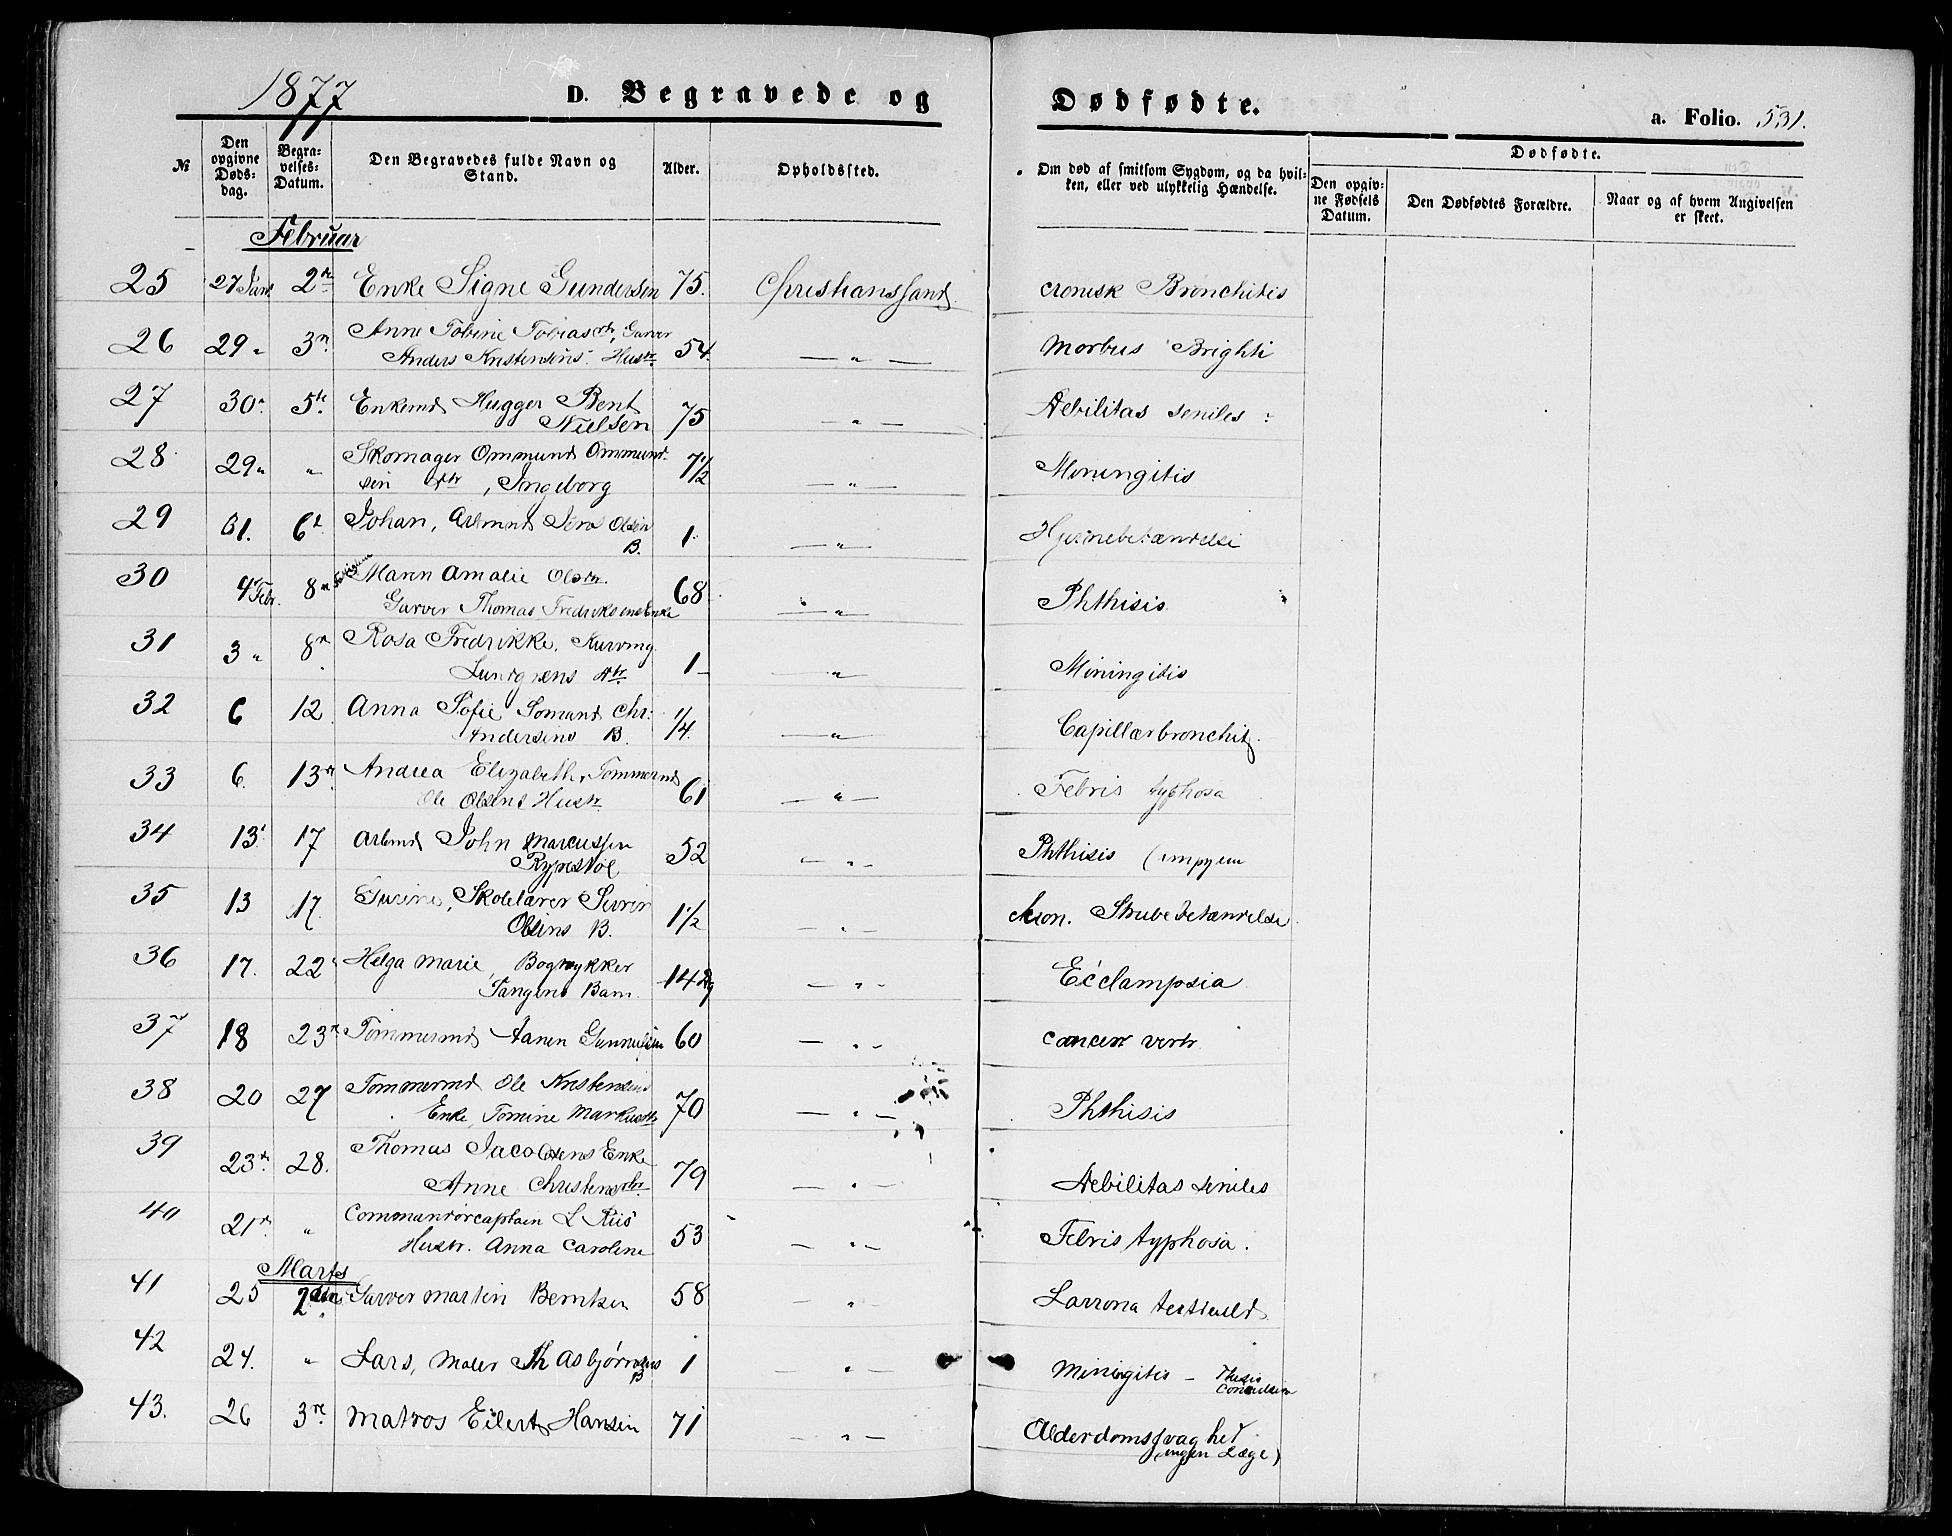 1877
D. Begravede og Dødfødte.
a. Folio. 531.
№
Den opgivne Døds-dag.
Begra-velses-Datum.
Den Begravedes fulde Navn og Stand.
Alder.
Opholdssted.
Om død af smitsom Sygdom, og da hvil-ken, eller ved ulykkelig Hændelse.
Dødfødte.
Den opgiv-ne Fødsels Datum.
Den Dødfødtes Forældre.
Naar og af hvem Angivelsen er skeet.
Februar
25 27 Jan. 2n Enke Signe Gundersen 75. Christianssand cronisk Bronchitis
26 29 " 3n Anne Tobine Tobiasdtr, Garver
Anders Kristensens Hustr 54. — " — Morbus Brighti
27 30 " 5te Enkemd Hugger Bent
Nielsen 75 — " — Debilitas seniles
28 29 " " Skomager Ommund Ommund-
sen Dtr, Ingeborg 7 1/2 — " — Meningitis
29 31. 6t Johan, Arbmd Jens Olsen
B. 1 — " — Hjernebetændelse
30 4 Febr. 8n Maren Amalie Olsdtr.
Garver Thomas Fredriksens Enke 68 — " — Phthisis
31 3 " 8n Rosa Fredrikke, Kurvmg
Lundgrens Dtr. 1 — " — Miningitis
32 6 12 Anna Sofie Sømand Chr.
Andersens B. 1/4. — " — Capillærbronchit.
33 6. 13n Andrea Elizabeth, Tømmermd
Ole Olsens Hustr 61 — " — Febris typhosa
34 13. 17 Arbmd John Marcussen
Rypestøl 52 — " — Phthisis (empyem
35 13 17. Skolelærer
Olsens B. 1 1/2 — " — Strubebetændelse
36 17. 22 Helga Marie, Bogtrykker
Tangens Barn. 14 Dg — " — Ecclampsia
37 18 23n Tømmermd Aanen Gunnufsen 60 — " — cancer vertr
38 20 27 Tømmermd Ole Kristensens
Enke, Tomine Markusdtr 70 — " — Phthisis
39 23n 28. Thomas Jacobsens Enke
Anne Christensdtr. 79 — " — Debilitas seniles
40 21n " Commandørcaptain L Riis
Hustr. Anna Caroline 53 — " — Febris typhosa.
Marts
41 25 2den Garver Martin Berntsen 58 — " —
42 24. " Lars, Maler Th Asbjørnsens
B 1 — " — Minigitis —
43. 26 3n Matros Eilert Hansen 71 — " — Alderdomssvaghed
(ingen Læge)